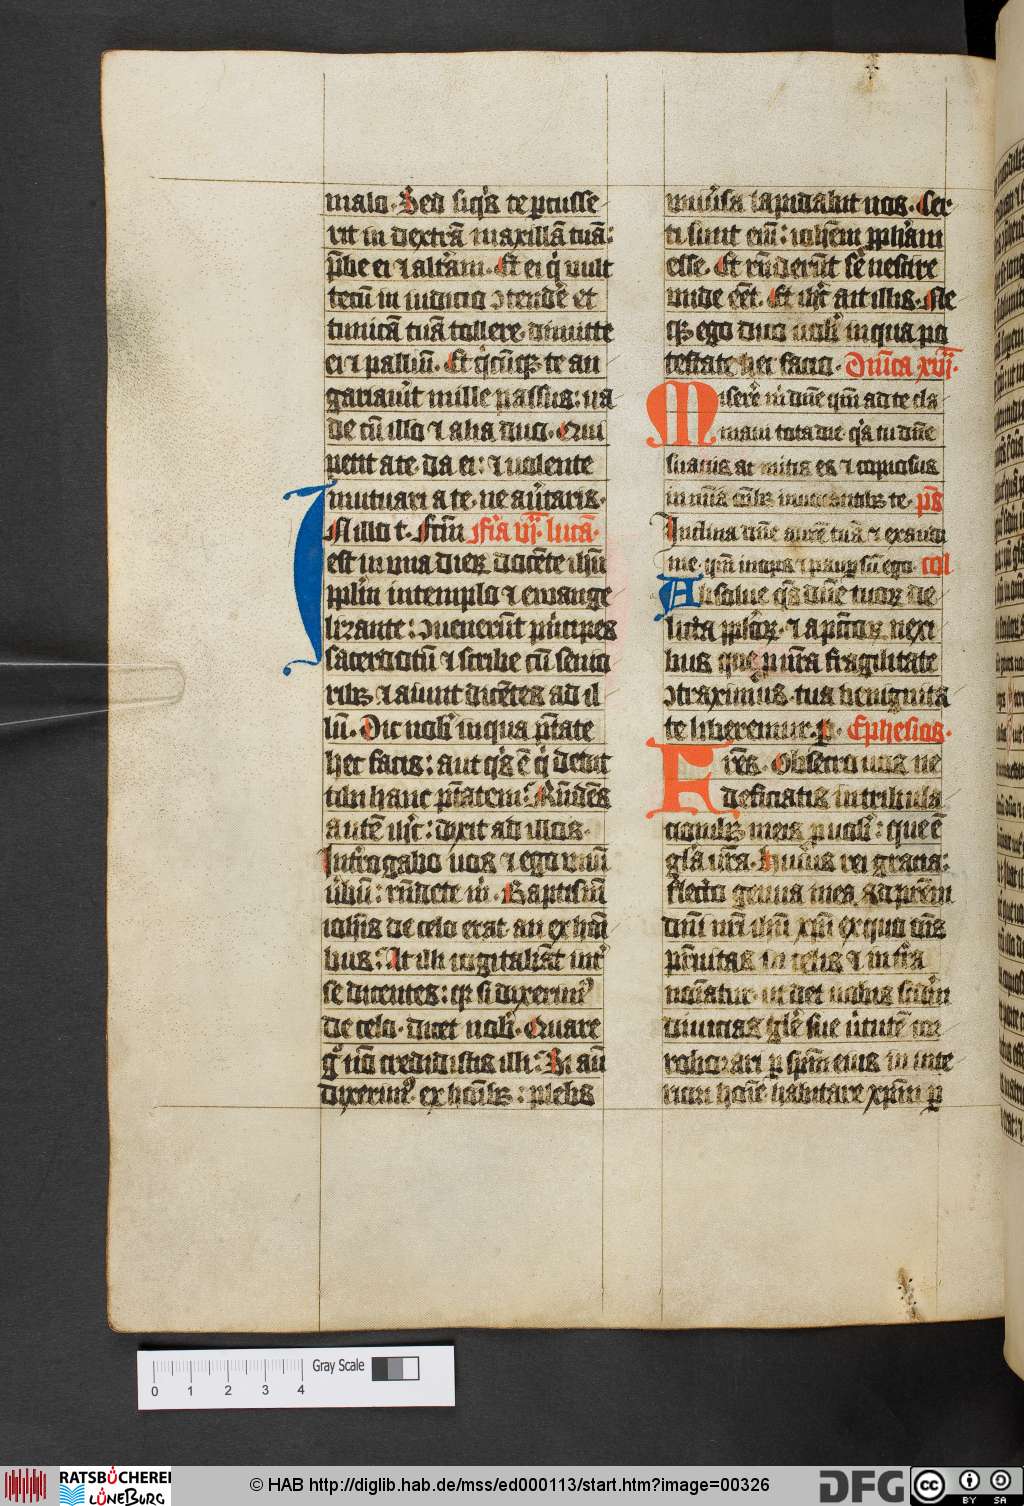 malo. Sed siq̄s te ꝑcusse
rit in dextrā maxillā tuā:
p̄be ei ⁊ altām. Et ei q̇ uult
tecū in iudicio ↄtendē et
tunicā tuā tollere. dimitte
ei ⁊ palliū. Et q̇cūqꝫ te an
gariauīt mille passus: ua
de cū illo ⁊ alia duo. Qui
petit a te. da ei: ⁊ uolente
mutuari a te. ne auītaris.
In illo t. Fc̄m Fīa vj. lucā.
est in una dieꝝ docēte ihū
ppl̄m in templo ⁊ ewange
lizante: ↄuenerūt pncipes
sacerdotū ⁊ scribe cū senio
ribꝫ ⁊ aiunt dicētes ad il
lū. Dic nob̄ in qua pt̄ate
hec facis: aut q̄s ē q̇ dedit
tibi hanc pt̄atem. Rn̄dēs
autē ihc̄: dixit ad illos.
Int̄rogabo uos ⁊ ego unū
ūbū: rn̄dete m̄. Baptism̄
ioh̄is de celo erat. an ex ho̅i
bus: At illi cogitabāt int̄
se dicentes: qꝛ si dixerimꝰ
de celo. dicet nob̄. Quare
gͦ nō credidistis illi: Si aū
dixerimꝰ ex ho̅ibꝫ: plebs
uniūsa lapidabit uos. Cer
ti sunt enī: ioh̄em ꝓph̄am
esse. Et rn̄derūt sē nescire
unde eēt. Et ihc̄ ait illis. Ne
qꝫ ego dico nob̄ in qua po
testate hec facio. Dn̄ica xvj.
Miserē m̄ dn̄e qm̄ ad te cla
maui tota die. q̄a tu dn̄e
suauis ac mitis es ⁊ copiosus
in mīa om̄ibꝫ inuocantibꝫ te. p̄s
Inclina dn̄e aurē tuā ⁊ exaudi
me. qm̄ inops ⁊ pauꝑ sū ego. col
Absolue q̄s dn̄e tuoꝝ de
licta ppl̄oꝝ. ⁊ a pccōꝝ nexi
bus que p nr̄a fragilitate
ↄtraximus. tua benignita
te liberemur. ꝑ. Ephesios.
Fres. Obsecro uos ne
deficiatis in tribula
cionibꝫ meis ꝓ uob̄: que ē
gl̄a ur̄a. Huius rei gracia:
flecto genua mea ad pr̄em
dn̄i nr̄i ihū xp̄i ex quo om̄s
pr̄nitas in celis ⁊ in t̄ra
no̅iatur. ut det uobis sc̄dm
diuicias gl̄e sue ūtutē cor
roborari ꝑ sp̄m eius in inte
riori ho̅ie. habitare xp̄m ꝑ
Gray Scale
0 1 2 3 4
RATSBÜCHEREI
LÜNEBURG
© HAB http://diglib.hab.de/mss/ed000113/start.htm?image=00326
DFG
cc
BY SA